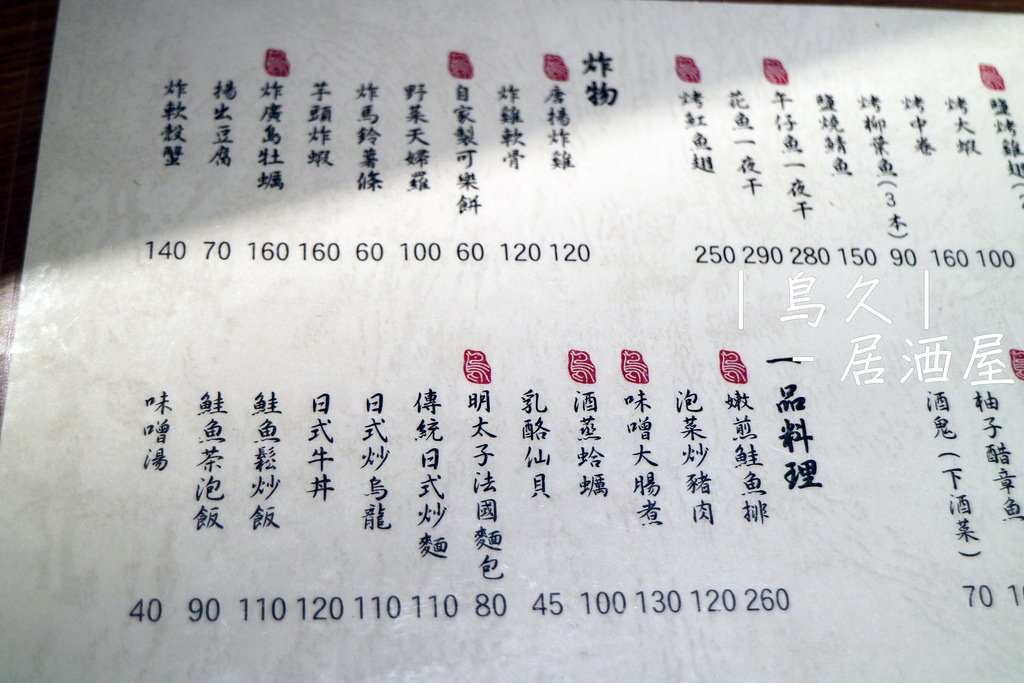 鹽烤雞翅
100
烤大蝦
160
烤中卷
90
烤柳葉魚(3本)
150
鹽燒鯖魚
280
午仔魚一夜干
290
花魚一夜干
250
烤魟魚翅
炸物
唐揚炸雞
120
炸雞軟骨
120
自家製可樂餅
60
野菜天婦羅
100
炸馬鈴薯條
60
芋頭炸蝦
160
炸廣島牡蠣
160
揚出豆腐
70
炸軟殼蟹
140
柚子醋章魚
酒鬼(下酒菜)
70
一品料理
嫩煎鮭魚排
260
泡菜炒豬肉
120
味噌大腸煮
130
酒蒸蛤蠣
100
乳酪仙貝
45
明太子法國麵包
80
傳統日式炒麵
110
日式炒烏龍
110
日式牛丼
120
鮭魚鬆炒飯
110
鮭魚茶泡飯
90
味噌湯
40
|鳥久|
-居酒屋